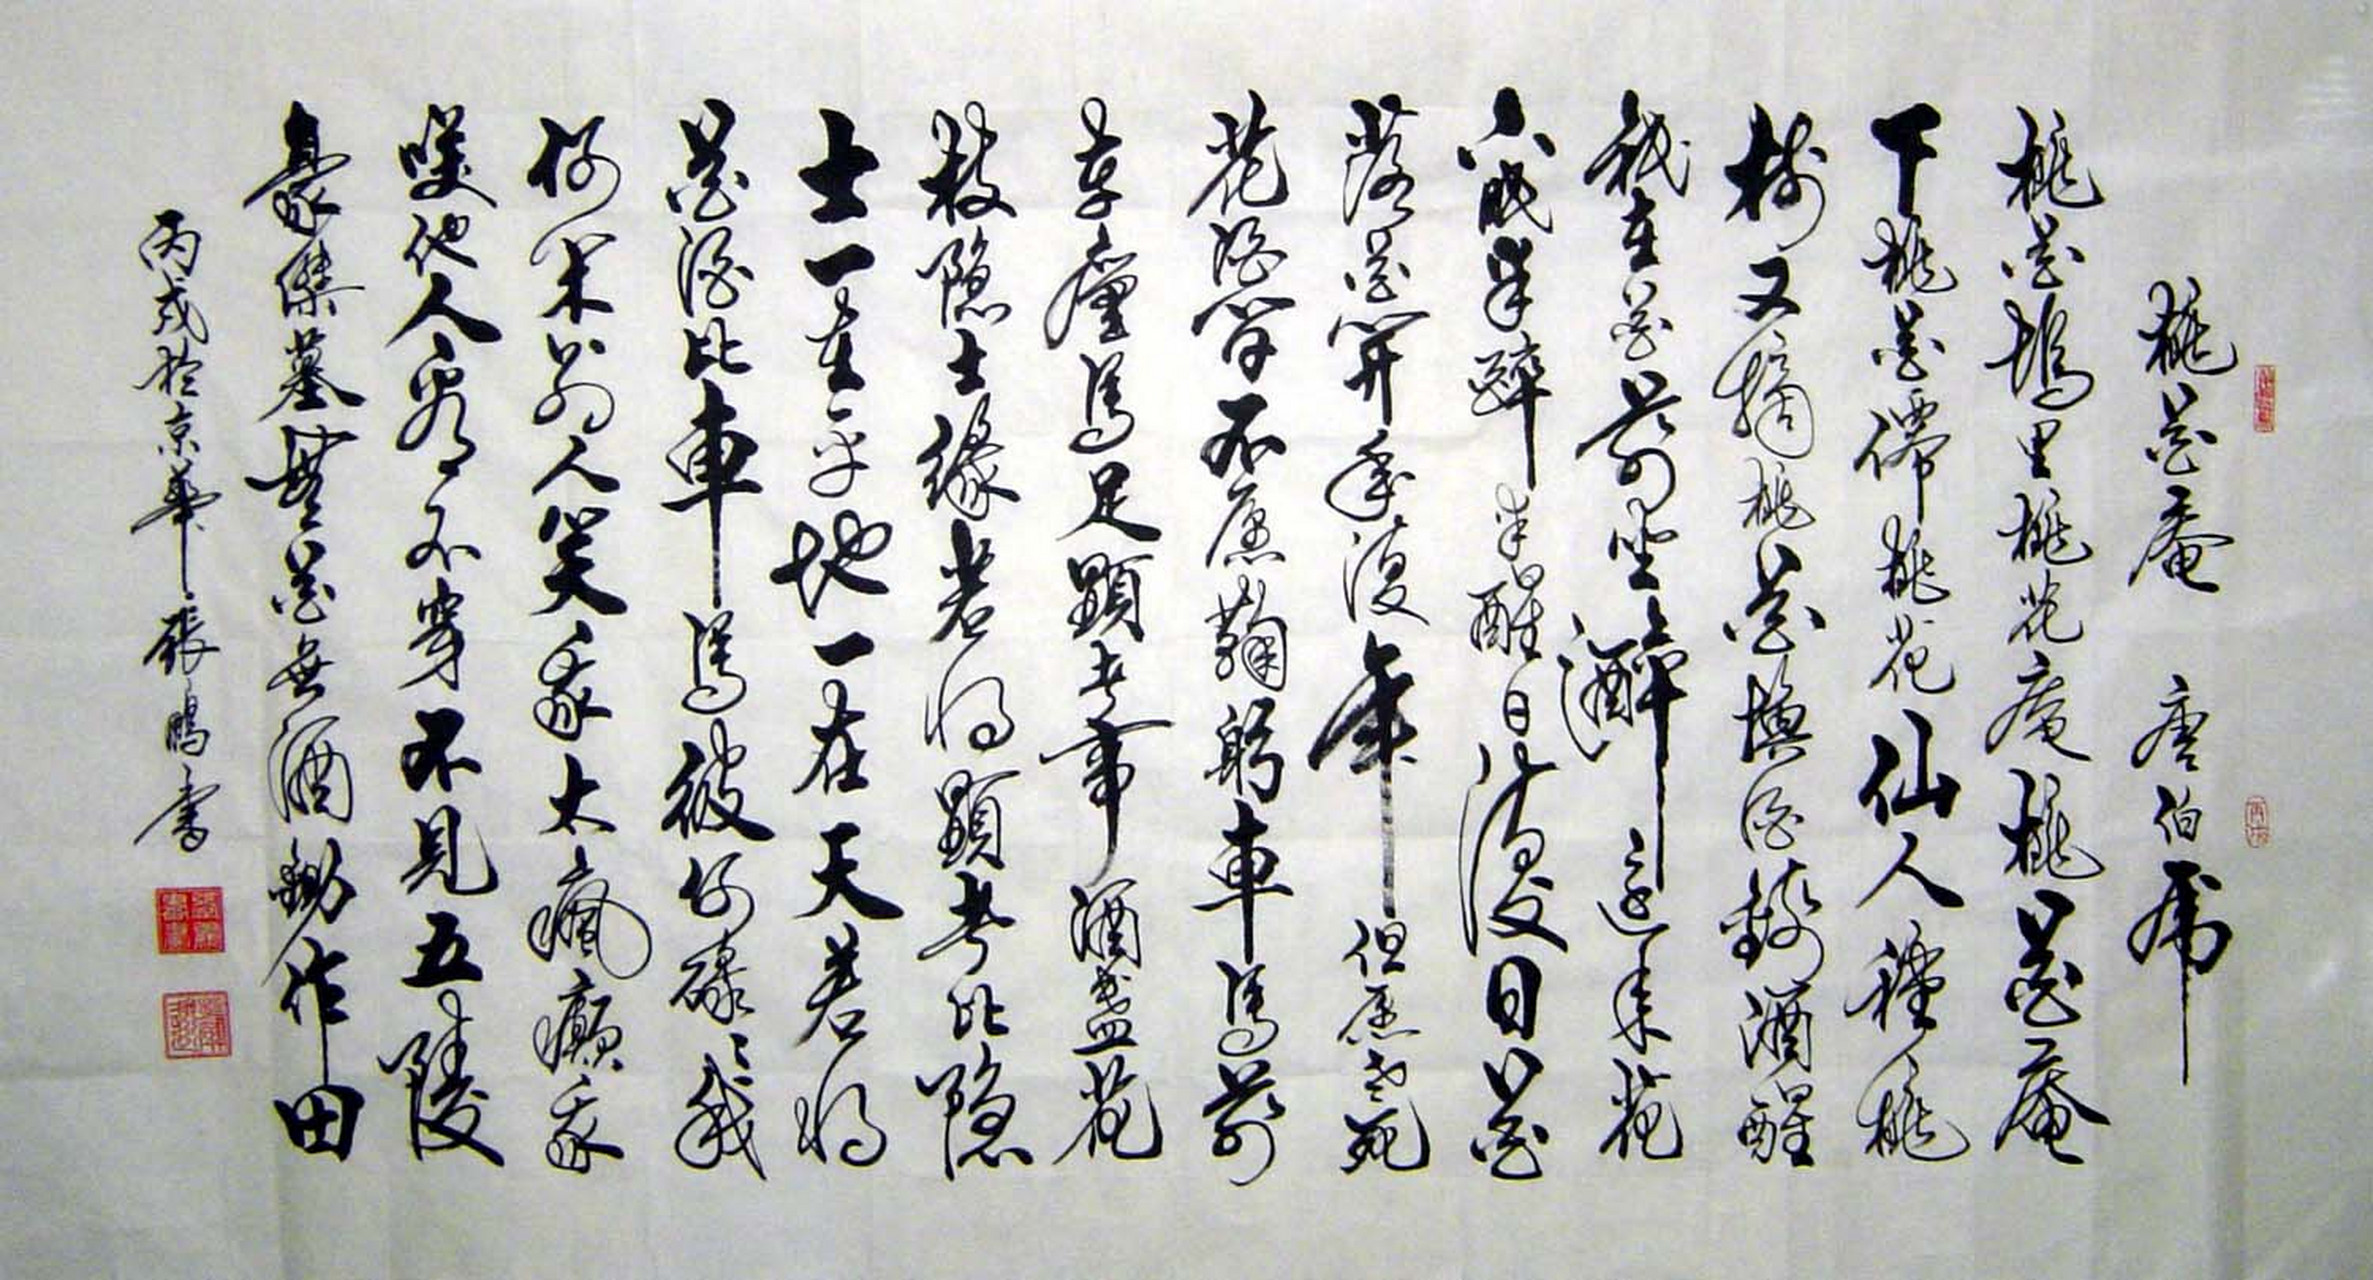 桃花庵 唐伯虎
桃花塢里桃花庵桃花庵
下桃花僊桃花仙人種桃
樹又摘桃花換酒錢酒醒
祇在花前坐酒醉還來花
下眠半醉半醒日復日花
落花開年復年但願老死
花酒間不願鞠躬車馬前
車塵馬足顯者事酒盞花
枝隱士緣若將顯者比隱
士一在平地一在天若將
花酒比車馬彼何碌々我
何閑別人笑我太瘋癲我
笑他人看不穿不見五陵
豪傑墓無花無酒鋤作田
丙戌於京華張鵬書